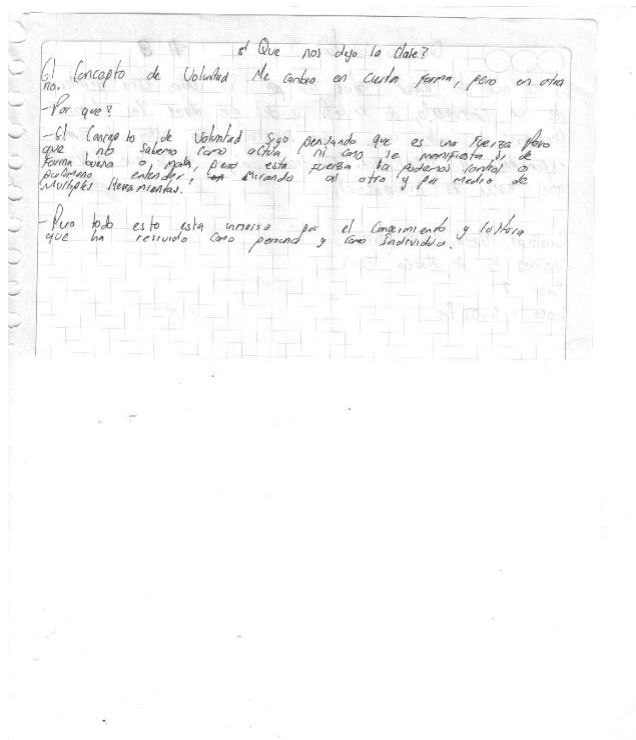 ¿ Que nos dejo la clase?
El Concepto de Voluntad Me cambio en cierta forma, pero en otra
no.
- Por que?
- El Concepto de Voluntad sigo pensando que es una Fuerza Pero
que no sabemos como actua ni como se manifiesta si de
Forma buena o mala, pero esta Fuerza la podemos control o
entender, Mirando al otro y por medio de
Multiples Herramientas.
- Pero todo esto esta inmerso por el Conocimiento y cultura
que ha como persona y como Individuo.